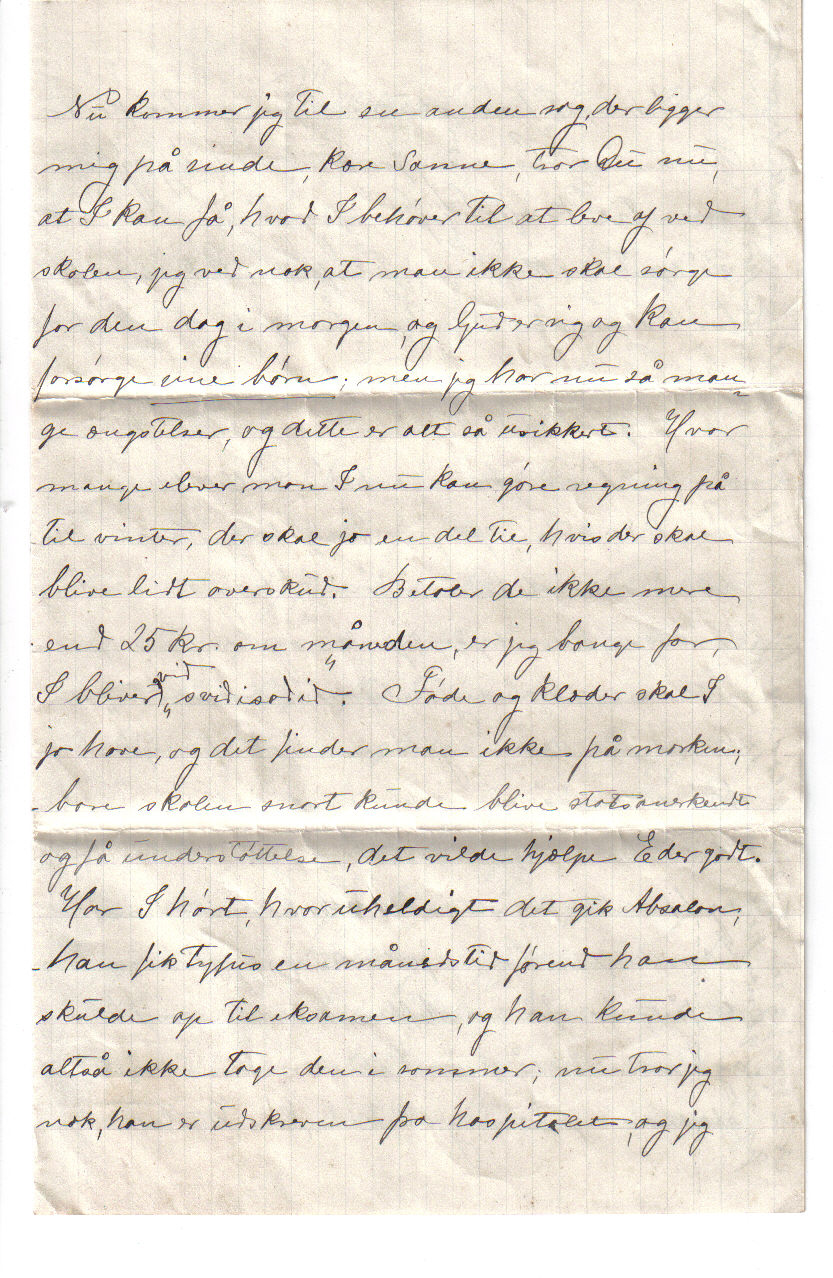 Nu kommer jeg til en anden sag, der ligger
mig på sinde, kære Sanne, tror Du nu,
at I kan få, hvad I behøver til at leve af ved
skolen, jeg ved nok, at man ikke skal sørge
for den dag i morgen, og Gud er rig og kan
forsørge sine børn; men jeg har nu så man-
ge ængstelser, og dette er alt så usikkert. Hvor
mange elever mon I nu kan gøre regning på
til vinter, der skal jo en del til, hvis der skal
blive lidt overskud. Betaler de ikke mere
end 25 Kr. om måneden, er jeg bange for,
I bliver
jo have, og det finder man ikke på marken;
bare skolen snart kunde blive statsanerkendt
og få understøttelse, det vilde hjælpe Eder godt.
Har I hørt, hvor uheldigt det gik Absalon,
han fik tyfus en månedstid førend han
skulde op til eksamen, og han kunde
altså ikke tage den i sommer; nu tror jeg
nok, han er udskreven fra hospitalet, og jeg